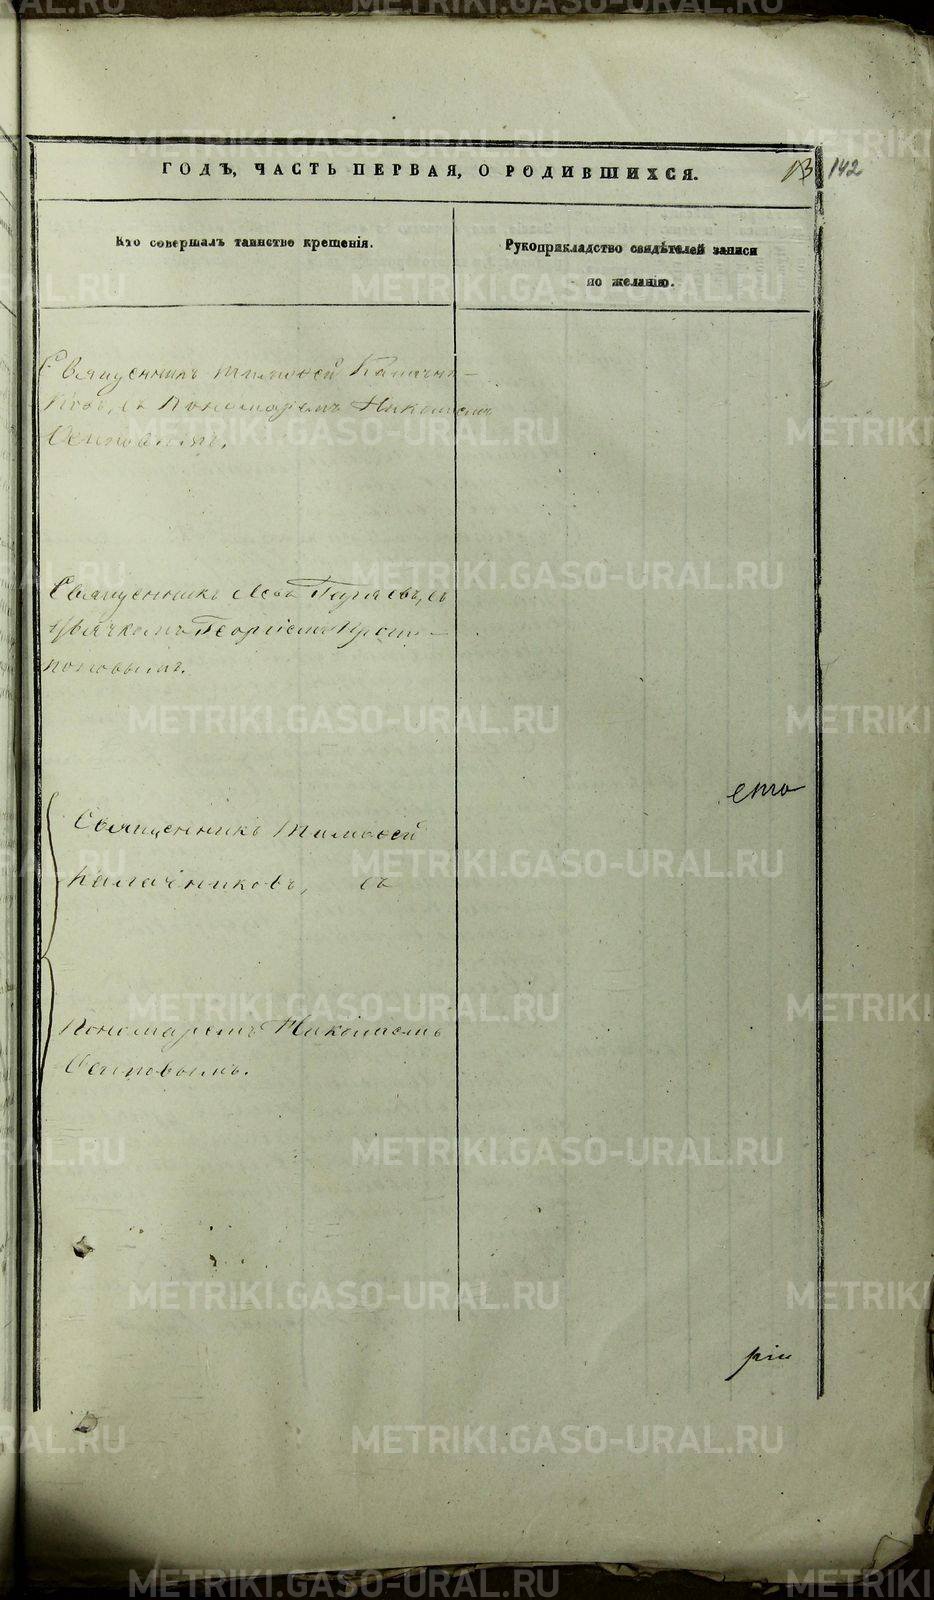 ГОДЪ, ЧАСТЬ ПЕРВАЯ, О РОДИВШИХСЯ.
13 142
Кто совершалъ таинство крещенія.
Рукоприкладство свидѣтелей записи
по желанію.
Священникъ Тимоѳей Калачни-
ковъ, съ Пономаремъ Николаемъ
Осиповымъ.
Священникъ Левъ съ
Дьячкомъ Георгіемъ Прото-
поповымъ.
ста
Священникъ Тимоѳей
Калачниковъ, съ
Пономаремъ Николаемъ
Осиповымъ.
ріи
METRIKI.GASO-URAL.RU